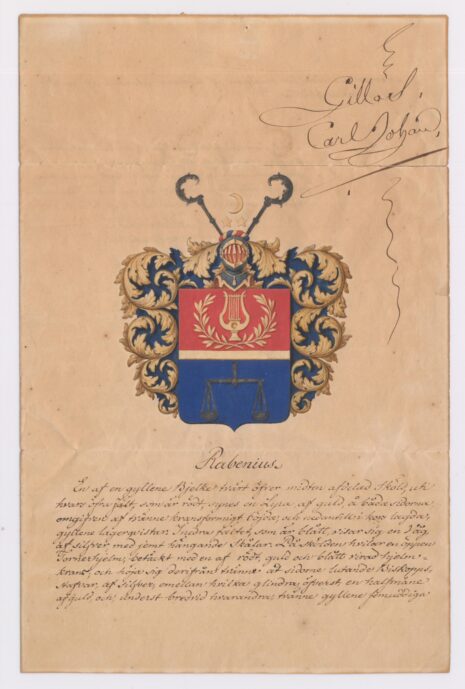 Gillas.
Carl Johan
Rabenius.
En af en gyllene Bjelke tvärt öfver midten afdelad Sköld, uti
hvars öfra fält, som är rödt, synes en Lyra af guld, å båda sidorna
omgifven af tvänne kransformigt böjda, och nedantill i kors lagda,
gyllene lagerqvistar. I nedra fältet, som är blått, visar sig en Våg
af silfver med jemt hängande Skålar. På Skölden hvilar en öppen
Tornerhjelm, betäckt med en af rödt, guld och blått virad hjelm-
krans, och höja sig derifrån tvänne åt sidorne lutande Biskops-
stafvar, af Silfver, emellan hvilka glindra, öfverst, en halfmåne
af guld, och underst bredvid hvarandra, tvänne gyllene sexuddiga